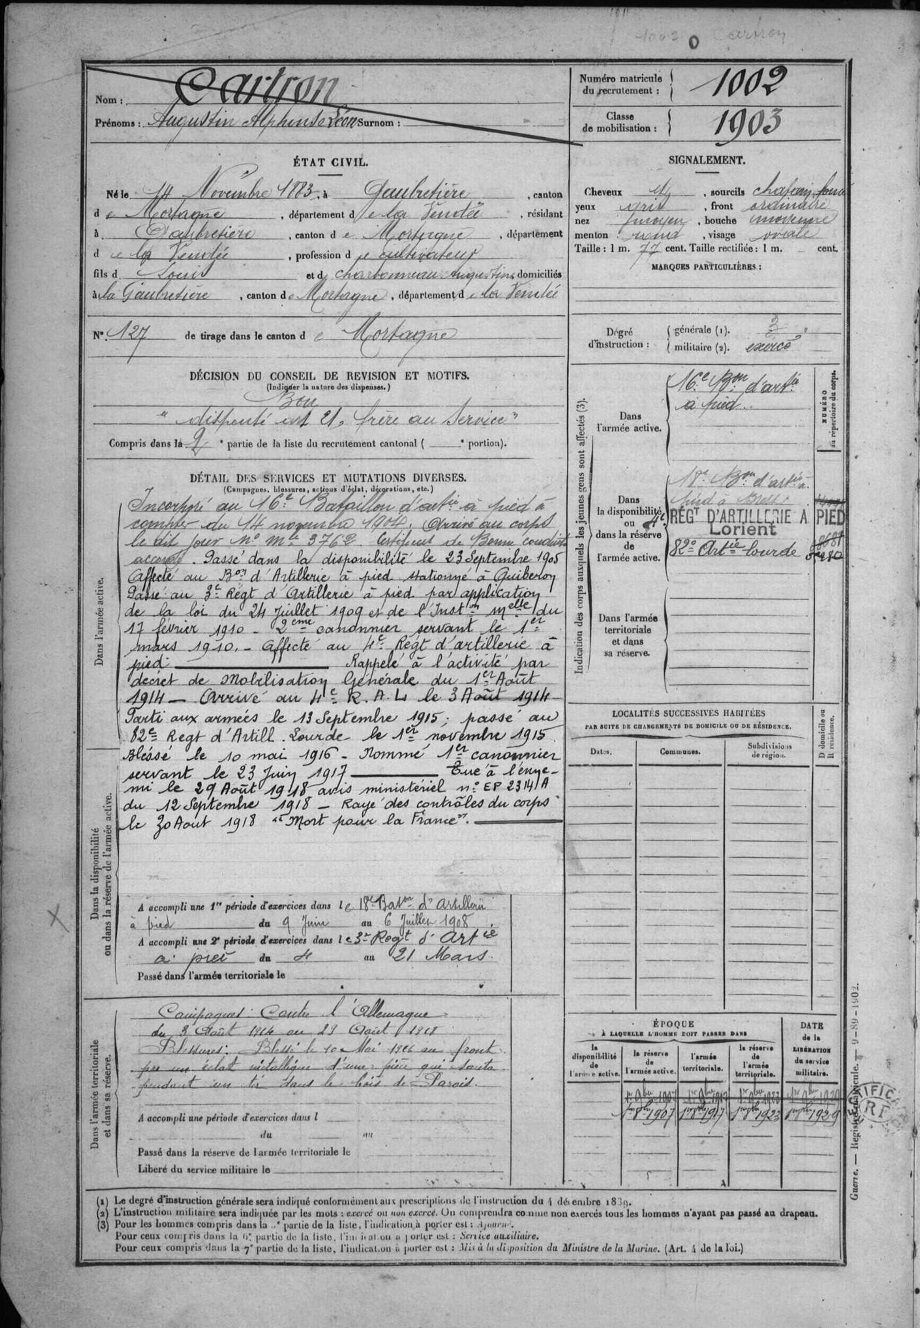 1002 0 Cartron
Nom : Cartron
Prénoms : Augustin Alphonse Léon Surnom :
Numéro matricule du recrutement : 1002
Classe de mobilisation : 1903
ÉTAT CIVIL.
Né le 14 Novembre 1883, à Gaubretière, canton
de Mortagne, département de la Vendée, résidant
à Gaubretière, canton de Mortagne, département
de la Vendée, profession de cultivateur
fils de Louis et de Charbonneau Augustine domiciliés
à la Gaubretière, canton de Mortagne, département de la Vendée
N° 127 de tirage dans le canton de Mortagne
SIGNALEMENT.
Cheveux sourcils chatain foncé
yeux gris, front ordinaire
nez moyen, bouche moyenne
menton rond, visage ovale
Taille : 1 m. 77 cent. Taille rectifiée : 1 m. cent.
MARQUES PARTICULIÈRES :
Dégré d'instruction : générale (1). 3
militaire (2). exercé
DÉCISION DU CONSEIL DE REVISION ET MOTIFS.
(Indiquer la nature des dispenses.)
Bon
"dispensé art 21. frère au Service"
Compris dans la 2e partie de la liste du recrutement cantonal ( e portion).
DÉTAIL DES SERVICES ET MUTATIONS DIVERSES.
(Campagnes, blessures, actions d'éclat, décorations, etc.)
Dans l'armée active.
Incorporé au 16e Bataillon d'artie à pied à
compter du 14 novembre 1904. Arrivé au corps
le dit jour No Mle 3762. Certificat de Bonne conduite
accordé. Passé dans la disponibilité le 23 Septembre 1905
Affecté au Bon d'Artillerie à pied stationné à Quiberon
Passé au 3e Régt d'Artillerie à pied par application
de la loi du 24 Juillet 1909 et de l'Inston Melle du
17 février 1910. - 2ème canonnier servant le 1er
mars 1910. - Affecté au 4e Régt d'artillerie à
pied. Rappelé à l'activité par
décret de Mobilisation Générale du 1er Août
1914 - Arrivé au 4e R.A.L le 3 Août 1914 -
Parti aux armées le 13 Septembre 1915 ; passé au
82e Regt d'Artill. Lourde le 1er novembre 1915
Blessé le 10 mai 1916 - Nommé 1er canonnier
servant le 23 Juin 1917 Tué à l'enne-
mi le 29 Août 1918 avis ministériel n° EP 2314 A
du 12 Septembre 1918 - Rayé des contrôles du corps
le 30 Aout 1918 "Mort pour la France".
Dans la disponibilité ou dans la réserve de l'armée active.
A accompli une 1re période d'exercices dans le 18e Baton d'Artillerie
à pied du 9 Juin au 6 Juillet 1908
A accompli une 2e période d'exercices dans le 3e Regt d'Artie
à pied du 4 au 21 Mars.
Passé dans l'armée territoriale le
Dans l'armée territoriale et dans sa réserve.
Campagnes : Contre l'Allemagne
du 3 Août 1914 au 29 Août 1918
Blessures : Blessé le 10 Mai 1916 au front
par un éclat métallique d'une pièce qui sauta
pendant un tir dans le bois de Parois.
A accompli une période d'exercices dans l
du au
Passé dans la réserve de l'armée territoriale le
Libéré du service militaire le
Indication des corps auxquels les jeunes gens sont affectés (3).
Dans l'armée active.
16e Bon d'artie
à pied.
NUMÉRO au répertoire du corps.
Dans la disponibilité ou dans la réserve de l'armée active.
Bon d'artie à
pied à Brest
4e RÉGT D'ARTILLERIE A PIED
Lorient
82e Artie Lourde
Dans l'armée territoriale et dans sa réserve.
LOCALITÉS SUCCESSIVES HABITÉES
PAR SUITE DE CHANGEMENTS DE DOMICILE OU DE RÉSIDENCE.
Dates. Communes. Subdivisions de région. D domicile ou R résidence.
ÉPOQUE
À LAQUELLE L'HOMME DOIT PASSER DANS
DATE de la LIBÉRATION du service militaire.
la disponibilité de l'armée active. la réserve de l'armée active. l'armée territoriale. la réserve de l'armée territoriale.
1er 9bre 1907
1er 8bre 1907 1er 8bre 1917 1er 8bre 1923 1er 8bre 1929
RECTIFICATION R.F.
Guerre. — Registre matricule. 9-89-1902.
(1) Le degré d'instruction générale sera indiqué conformément aux prescriptions de l'instruction du 4 décembre 1889.
(2) L'instruction militaire sera indiquée par les mots : exercé ou non exercé. On comprendra comme non exercés tous les hommes n'ayant pas passé au drapeau.
(3) Pour les hommes compris dans la 5e partie de la liste, l'indication à porter est : Ajourné.
Pour ceux compris dans la 6e partie de la liste, l'indication à porter est : Service auxiliaire.
Pour ceux compris dans la 7e partie de la liste, l'indication à porter est : Mis à la disposition du Ministre de la Marine. (Art. 4 de la loi.)